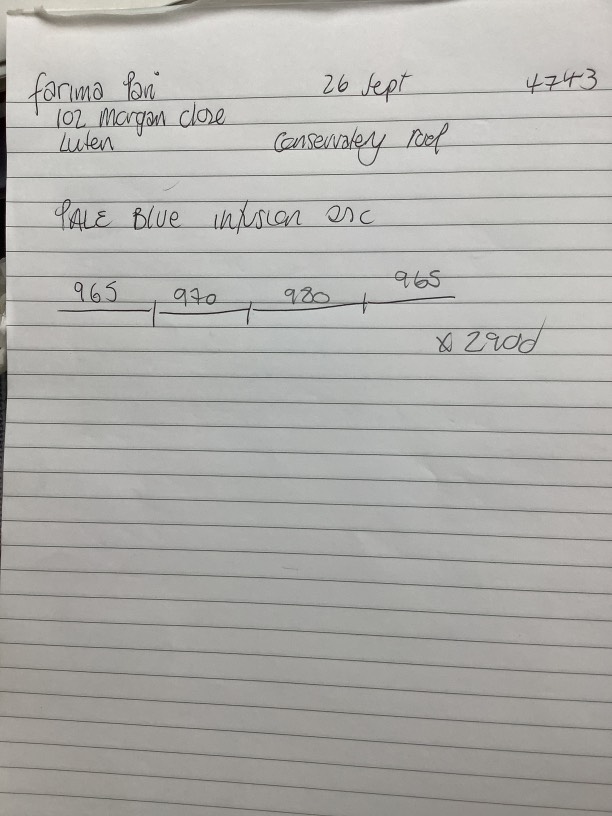 farima Pari 26 Sept 4743
102 Morgan close
Luten Conservatery roof
PALE BLUE infusion osc
965 970 980 965
x 290d